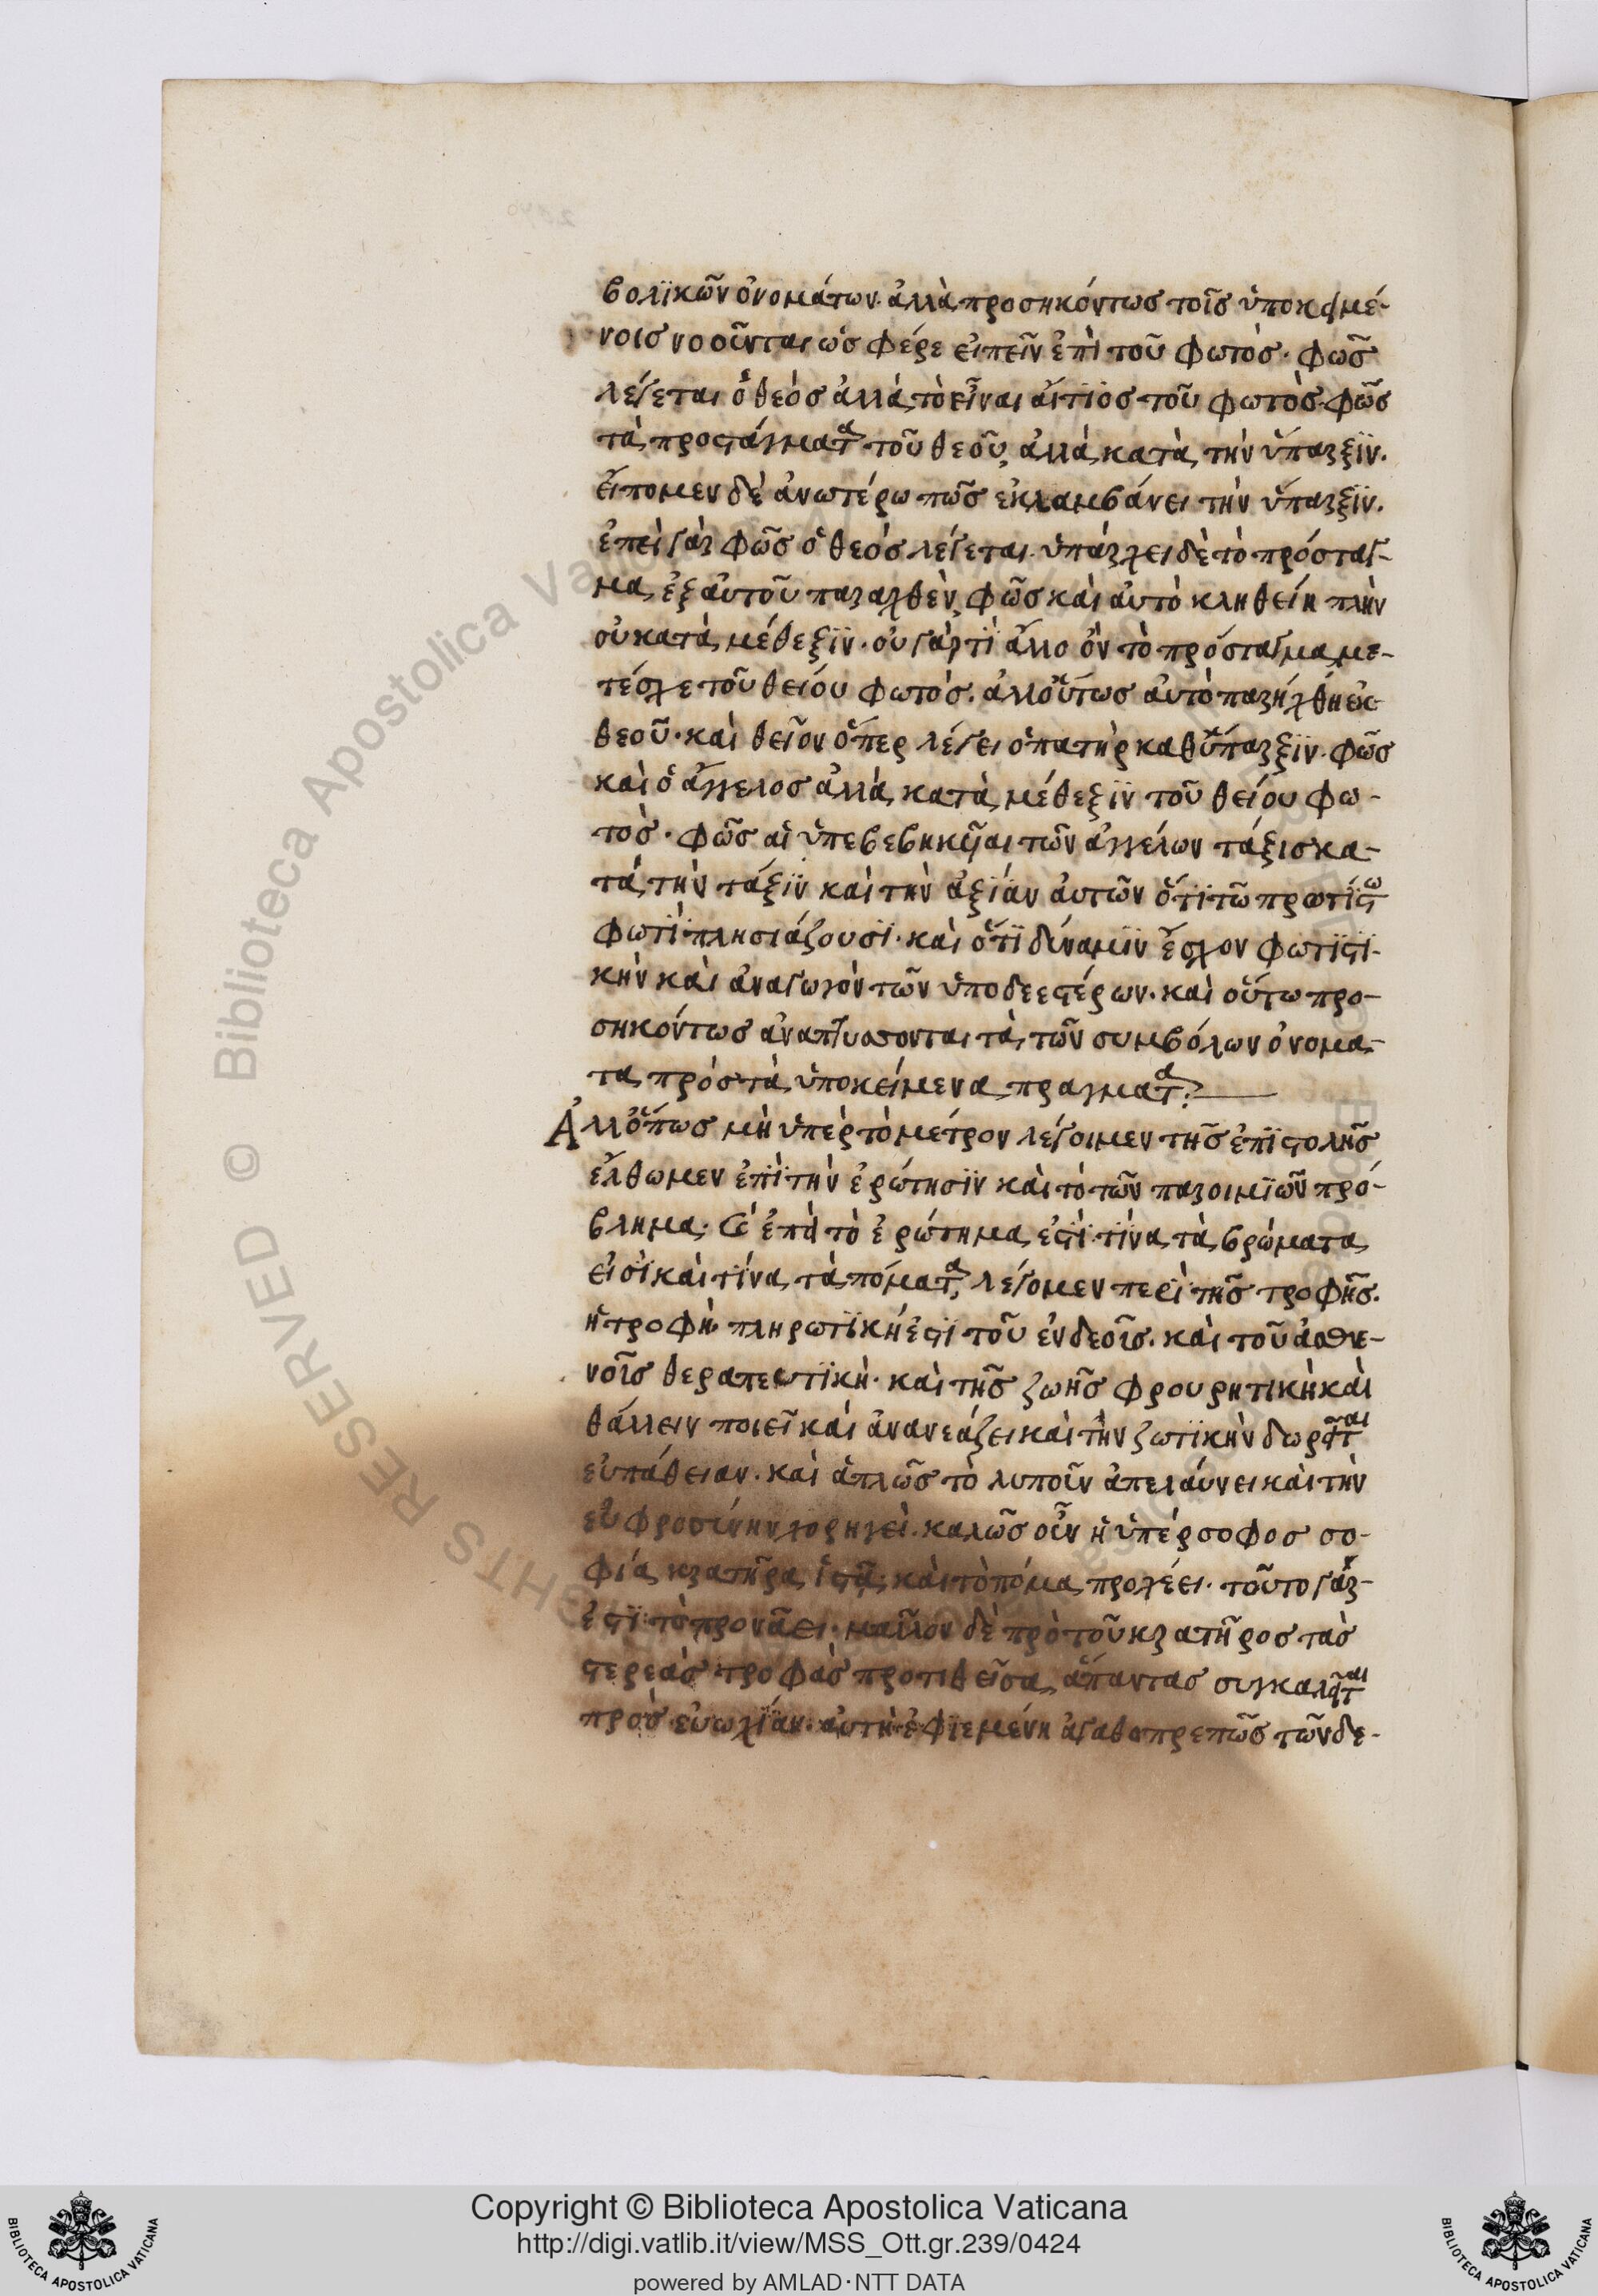 βολϊκῶν ὀνομάτων· ἀλλὰ προσηκόντως τοῖς ὑποκειμέ-
νοις νοοῦνται ὡς φέρε εἰπεῖν ἐπὶ τοῦ φωτός· φῶς
λέγεται ὁ θεὸς ἀλλὰ τὸ εἶναι αἴτϊος τοῦ φωτὸς· φῶς
τὰ προστάγματα τοῦ θεοῦ, ἀλλὰ κατὰ τὴν ὕπαρξϊν.
εἴπομεν δὲ ἀνωτέρω πῶς ἐκλαμβάνει τὴν ὕπαρξϊν.
ἐπεὶ γὰρ φῶς ὁ θεὸς λέγεται. ὑπάρχει δὲ τὸ πρόσταγ-
μα ἐξ αὐτοῦ παραχθὲν, φῶς καὶ αὐτὸ κληθείη πλὴν
οὐ κατὰ μέθεξϊν· οὐ γάρ τϊ ἄλλο ὂν τὸ πρόσταγμα με-
τέσχε τοῦ θείου φωτός. ἀλλ' οὕτως αὐτὸ παρήχθη ἐκ
θεοῦ· καὶ θεῖον ὅπερ λέγει ὁ πατὴρ καθ' ὕπαρξϊν. φῶς
καὶ ὁ ἄγγελος ἀλλὰ κατὰ μέθεξϊν τοῦ θείου φω-
τὸς· φῶς αἱ ὑπερβεβηκυῖαι τῶν ἀγγέλων τάξις κα-
τὰ τὴν τάξϊν καὶ τὴν ἀξϊαν αὐτῶν ὅτϊ τῶ πρωτίστω
φωτϊ πλησιάζουσϊ· καὶ ὅτϊ δύναμϊν ἔσχον φωτϊστι-
κὴν καὶ ἀναγωγὸν τῶν ὑποδεεστέρων· καὶ οὕτω προ-
σηκόντως ἀναπτύσσονται τὰ τῶν συμβόλων ὀνόμα-
τα πρὸς τὰ ὑποκείμενα πράγματα:
Ἀλλ' ὅπως μὴ ὑπὲρ τὸ μέτρον λέγοιμεν τῆς ἐπϊστολῆς
ἔλθωμεν ἐπϊ τὴν ἐρώτησϊν καὶ τὸ τῶν παροιμϊῶν πρό-
βλημα· ἐστϊ τίνα τὰ βρώματα
εἰσϊ καὶ τίνα τὰ πόματα, λέγομεν περὶ τῆς τροφῆς.
ἡ τροφὴ πληρωτϊκή ἐστϊ τοῦ ἐνδεοῦς. καὶ τοῦ ἀσθε-
νοῦς θεραπευτϊκὴ· καὶ τῆς ζωῆς φρουρητικὴ καὶ
θάλλειν ποιεῖ καὶ ἀνανεάζει καὶ τὴν ζωτϊκὴν δωρεῖται
εὐπάθειαν. καὶ ἁπλῶς τὸ λυποῦν ἀπελαύνει καὶ τὴν
εὐφροσύνην χορηγεῖ. καλῶς οὖν ἡ ὑπέρσοφος σο-
φία κρατῆρα ἱστᾶ καὶ τὸ πόμα προχέει. τοῦτο γάρ
ἐστϊ τὸ προνάει· μᾶλλον δὲ πρὸ τοῦ κρατῆρος τὰς
στερεὰς τροφὰς προτιθεῖσα, ἅπαντας συγκαλεῖται
πρὸς εὐωχϊαν. αὐτὴ ἐφϊεμένη ἀγαθοπρεπῶς τῶν δε-
Copyright © Biblioteca Apostolica Vaticana
http://digi.vatlib.it/view/MSS_Ott.gr.239/0424
powered by AMLAD·NTT DATA